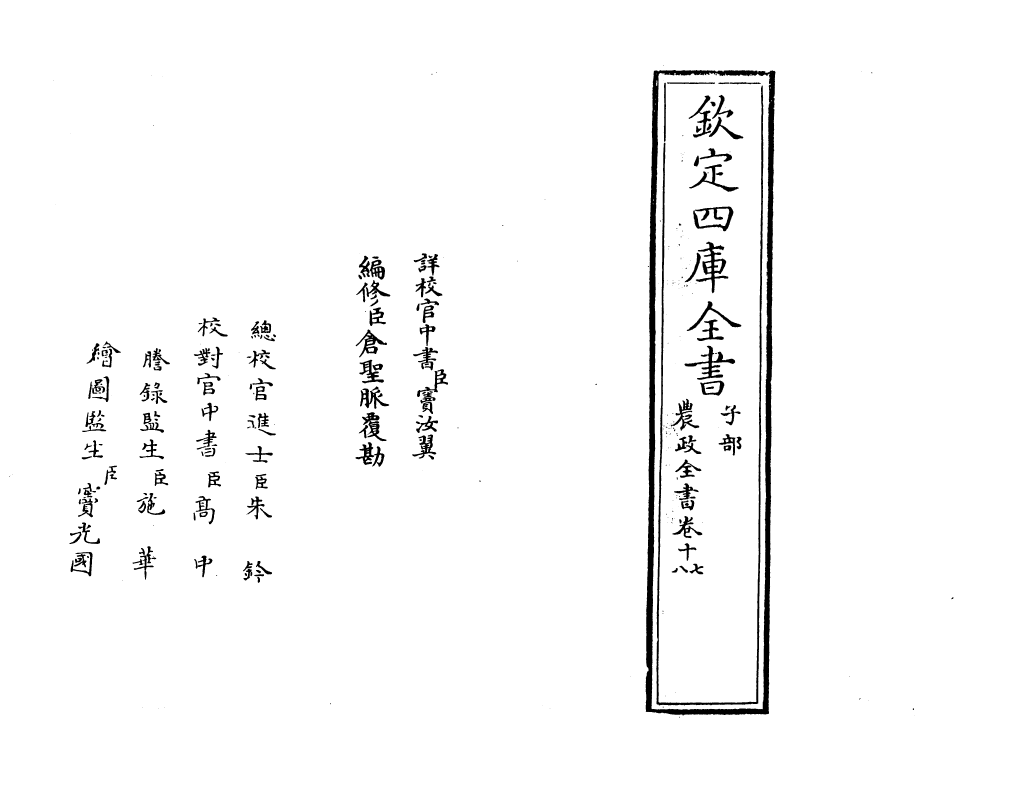 欽定四庫全書
子部
農政全書卷十七八
詳校官中書臣竇汝翼
編修臣倉聖脈覆勘
總校官進士臣朱鈐
校對官中書臣高中
謄錄監生臣施華
繪圖監生臣竇光國